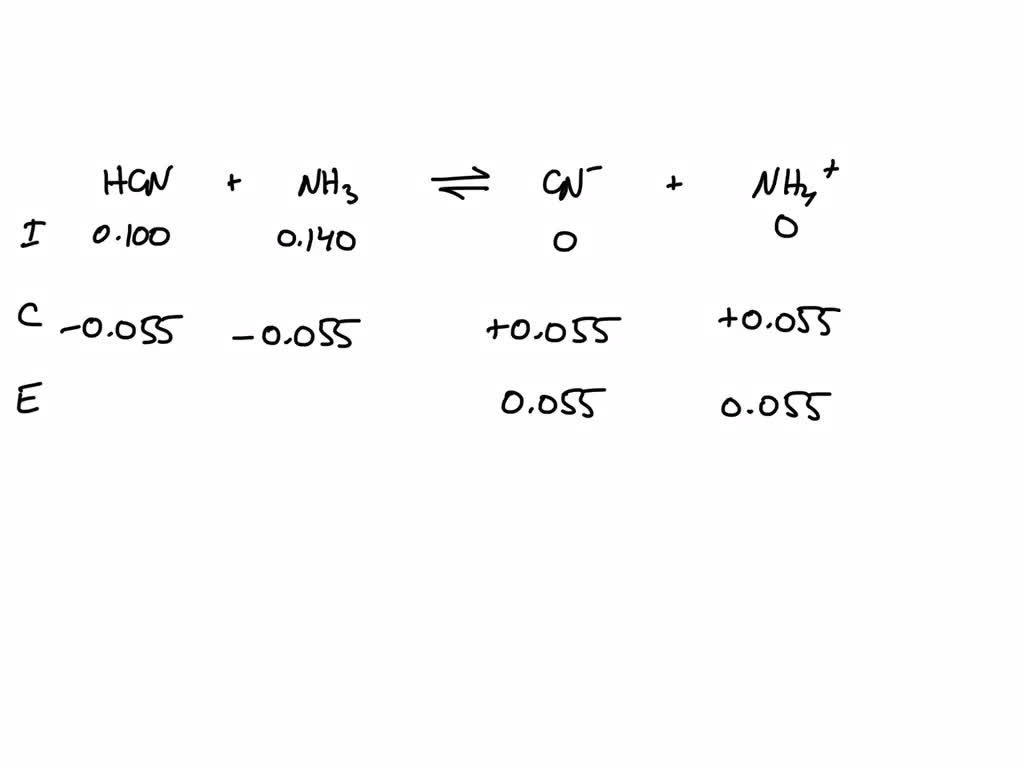 HCN + NH₃ ⇌ CN⁻ + NH₄⁺
I 0.100 0.140 0 0
C -0.055 -0.055 +0.055 +0.055
E 0.055 0.055